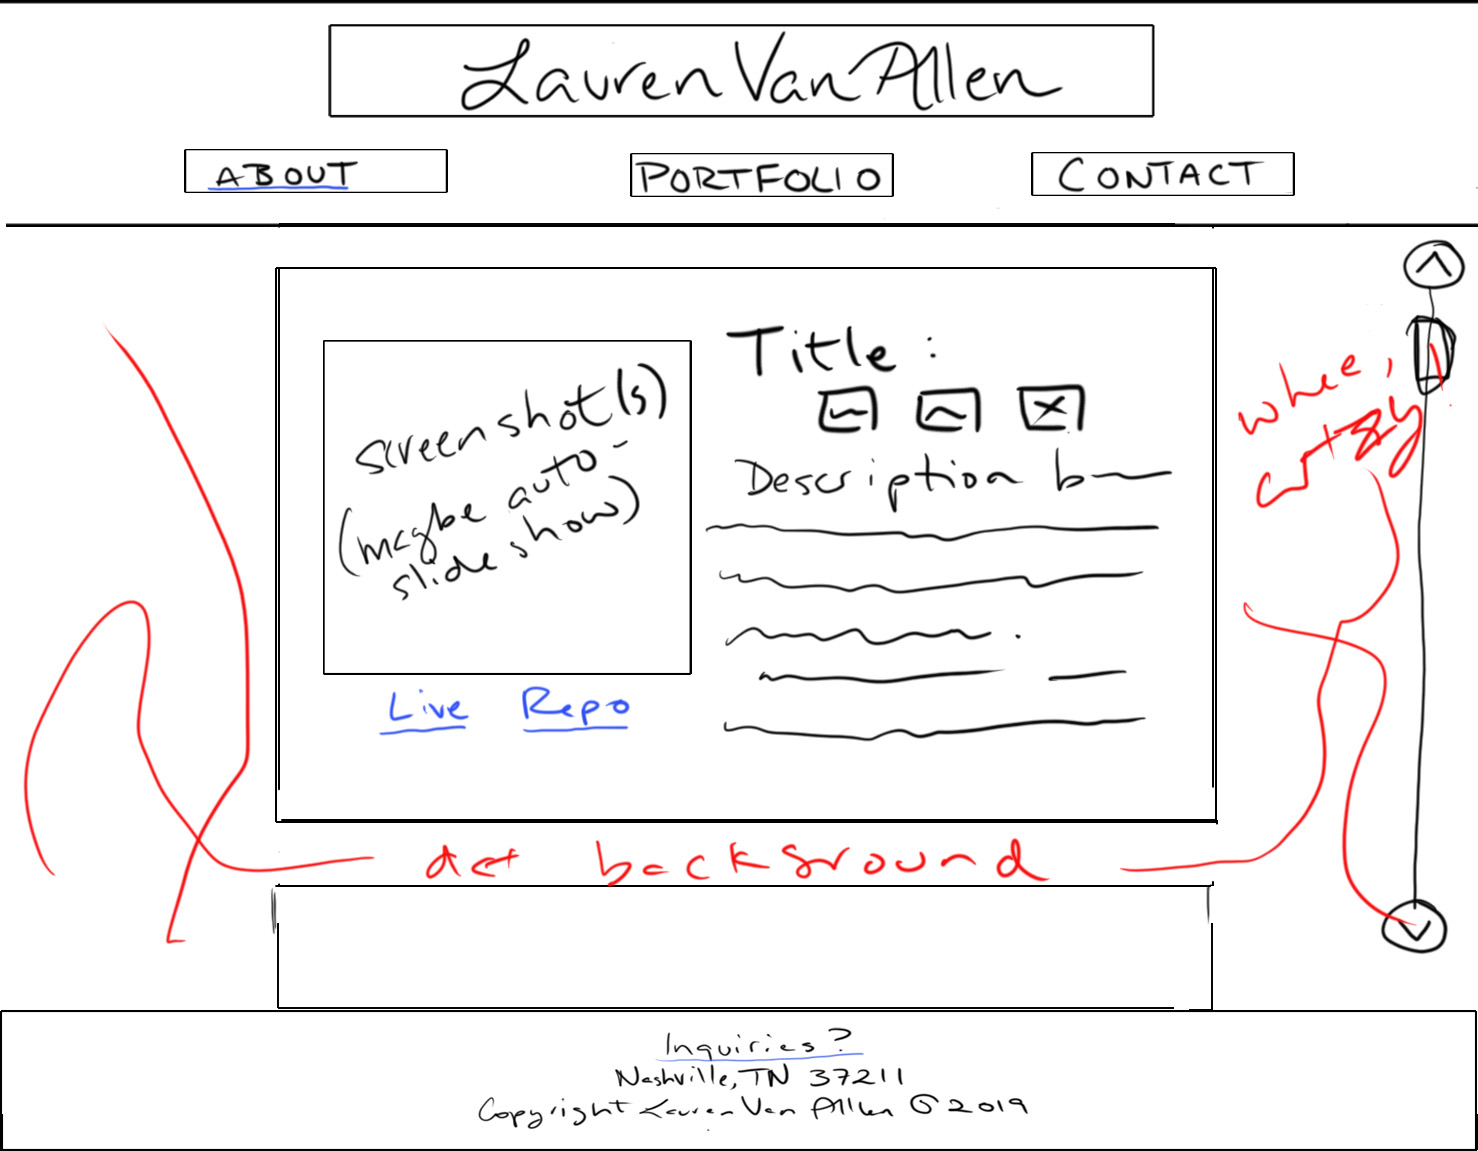 Lauren Van Allen
ABOUT
PORTFOLIO
CONTACT
Title:
screenshot(s)
(maybe auto-
slideshow)
Description
whee,
artsy
Live Repo
background
Inquiries?
Nashville, TN 37211
Copyright Lauren Van Allen © 2019